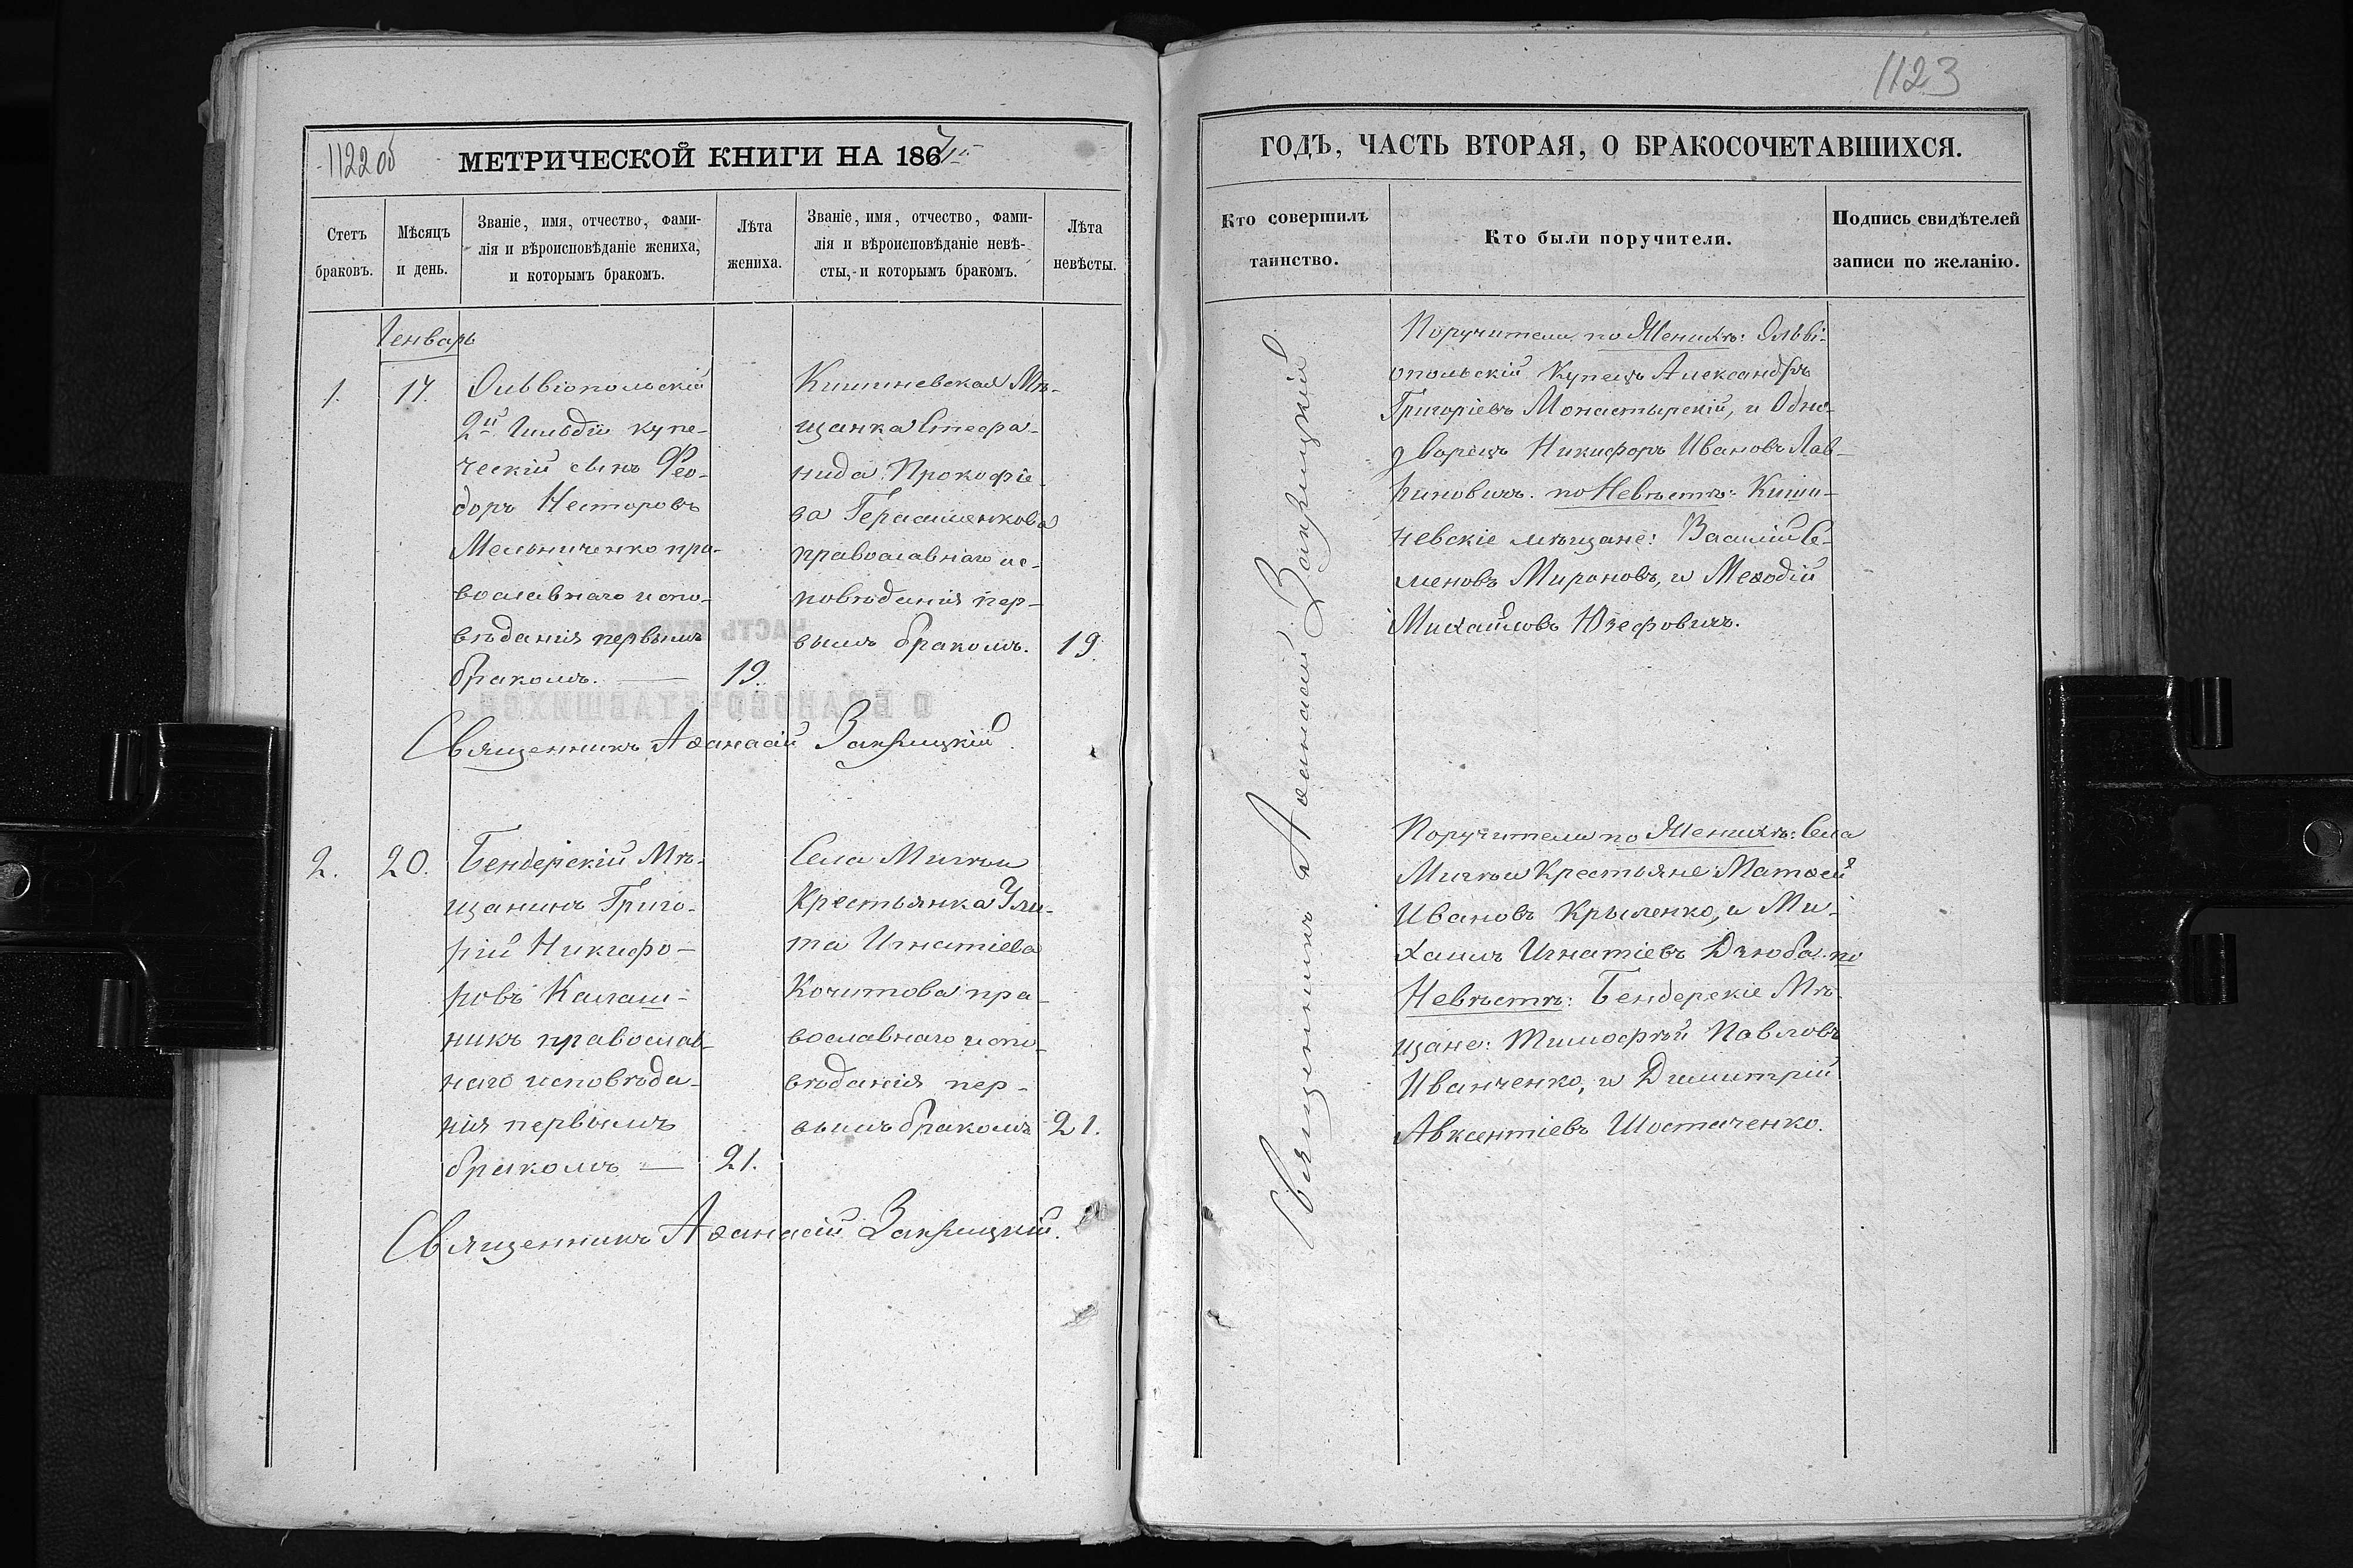 1122 об
МЕТРИЧЕСКОЙ КНИГИ НА 186
Стетъ браковъ.
Мѣсяцъ и день.
Званіе, имя, отчество, фами-
лія и вѣроисповѣданіе жениха,
и которымъ бракомъ.
Лѣта жениха.
Званіе, имя, отчество, фами-
лія и вѣроисповѣданіе невѣ-
сты, и которымъ бракомъ.
Лѣта невѣсты.
Генварь
1.
17.
Ольвіопольскій
2й Гильдіи купе-
ческій сынъ Фео-
доръ Несторовъ
Мельниченко пра-
вославнаго испо-
вѣданія первымъ
бракомъ. —
19.
Кишиневская Мѣ-
щанка Стефа-
нида Прокофіе-
ва Герасименкова
православнаго ис-
повѣданія пер-
вымъ бракомъ.
19.
Священникъ Аѳанасій Закрицкій.
2.
20.
Бендерскій Мѣ-
щанинъ Григо-
рій Никифо-
ровъ Калаш-
никъ православ-
наго исповѣда-
нія первымъ
бракомъ —
21.
Села
Крестьянка Ули-
та Игнатіева
Кочитова пра-
вославнаго испо-
вѣданія пер-
вымъ бракомъ
21.
Священникъ Аѳанасій Закрицкій.
1123
ГОДЪ, ЧАСТЬ ВТОРАЯ, О БРАКОСОЧЕТАВШИХСЯ.
Кто совершилъ
таинство.
Кто были поручители.
Подпись свидѣтелей
записи по желанію.
Священникъ Аѳанасій Закрицкій
Поручители по Женихѣ: Ольві-
опольскій Купецъ Александръ
Григоріевъ Монастырскій, и Одно-
дворецъ Никифоръ Ивановъ Лав-
риновичъ. по Невѣстѣ: Киши-
невскіе мѣщане: Василій Се-
меновъ Мироновъ, и Меѳодій
Михайловъ Юзефовичъ.
Поручители по Женихѣ: Села
Крестьяне Матѳей
Ивановъ Крыленко, и Ми-
хаилъ Игнатіевъ Дзюба. по
Невѣстѣ: Бендерскіе Мѣ-
щане: Тимофѣй Павловъ
Иванченко, и Димитрій
Авксентіевъ Шостаченко.